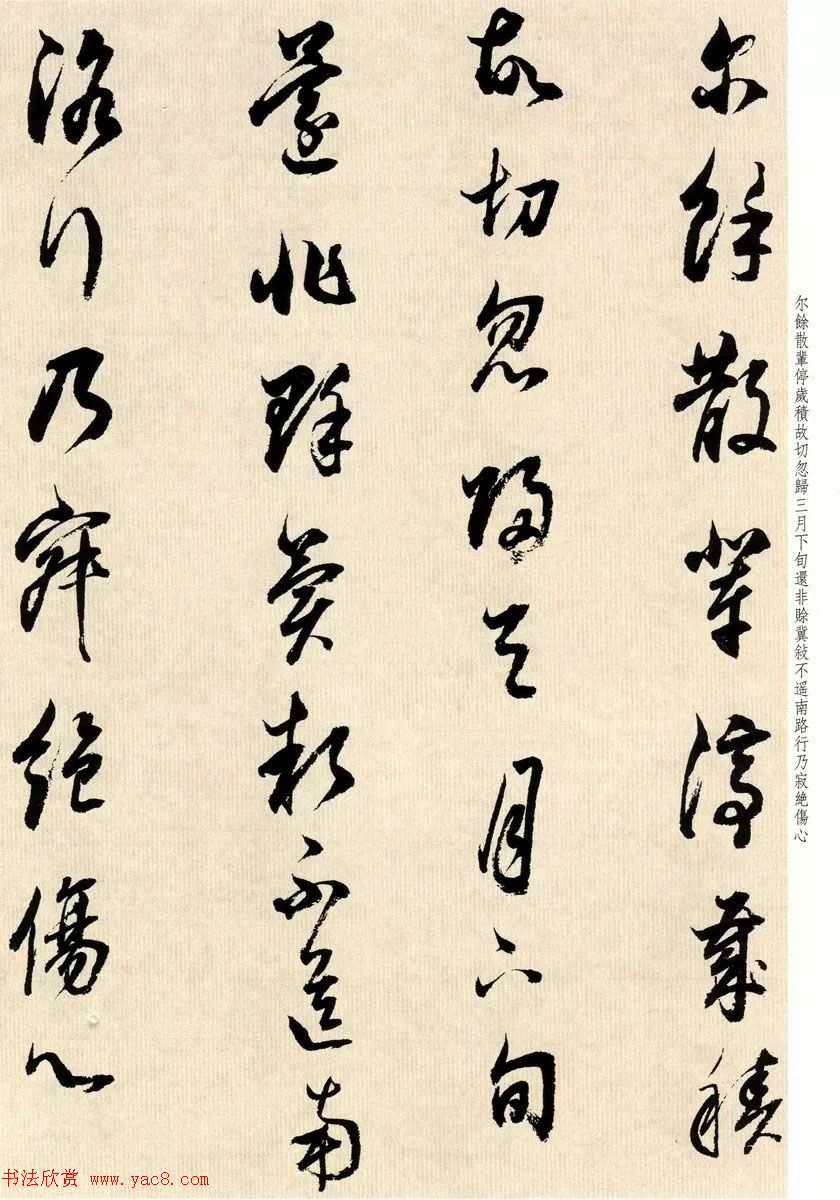 尔餘散輩停歲積
故切忽歸三月下旬
還非賒冀敍不遥南
路行乃寂絶傷心
尔餘散輩停歲積故切忽歸三月下旬還非賒冀敍不遥南路行乃寂絶傷心
书法欣赏 www.yac8.com